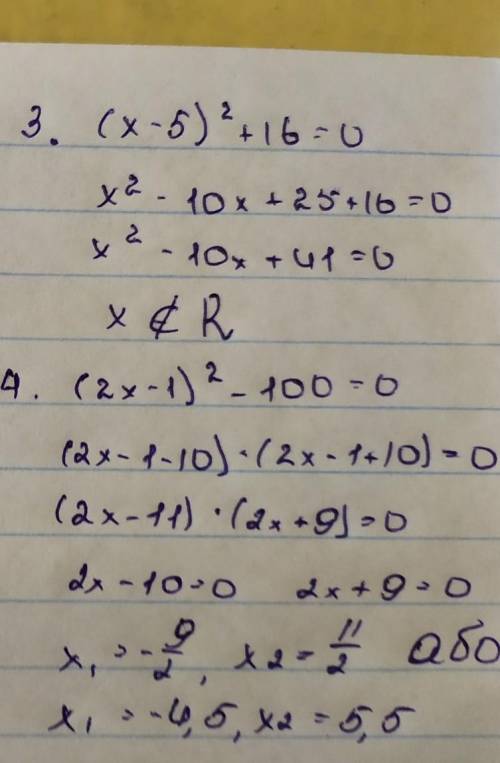 3. (x-5)² + 16 = 0
x² - 10x + 25 + 16 = 0
x² - 10x + 41 = 0
x ∉ R
4. (2x-1)² - 100 = 0
(2x-1-10)·(2x-1+10) = 0
(2x-11)·(2x+9) = 0
2x - 10 = 0 2x + 9 = 0
x₁ = -9/2, x₂ = 11/2 або
x₁ = -4,5, x₂ = 5,5